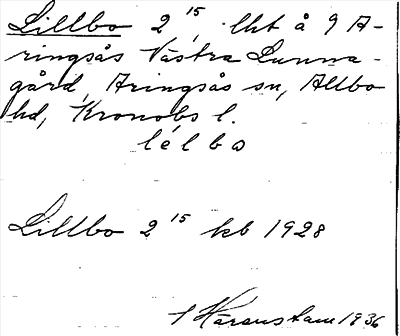 Lillbo 2 15, lht å 9 A-
ringsås Västra Lunna-
gård, Aringsås sn, Allbo
hd, Kronobs l.
lélbo
Lillbo 2 15 kb 1928
1936